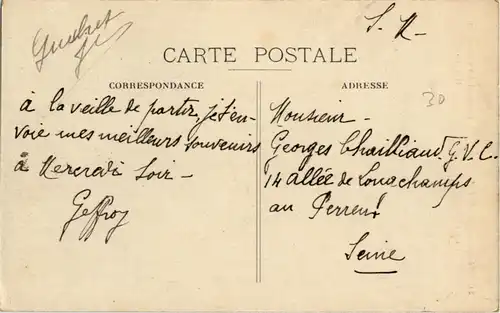 S. M-
CARTE POSTALE
CORRESPONDANCE
à la veille de partir, je t'en-
voie mes meilleurs souvenirs
à Mercredi Soir -
Geffroy
ADRESSE
30
Monsieur -
Georges Chailliaud. G.V.C.
14 allée de Longchamps
au Perreux
Seine